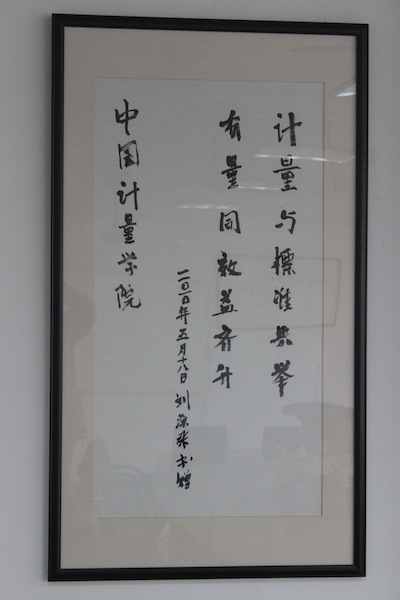 计量与標准共举
质量同效益齐升
二〇一〇年五月十八日 刘源张书赠
中国计量学院